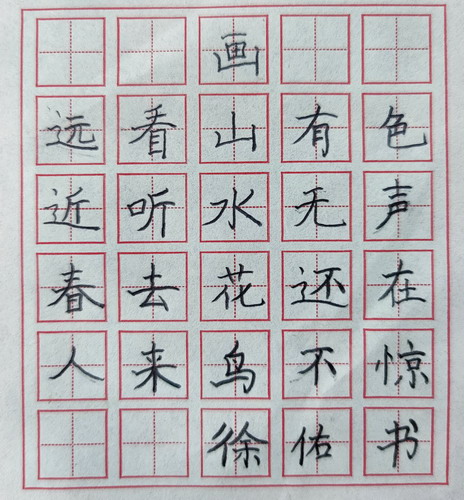 画
远看山有色
近听水无声
春去花还在
人来鸟不惊
徐佑书